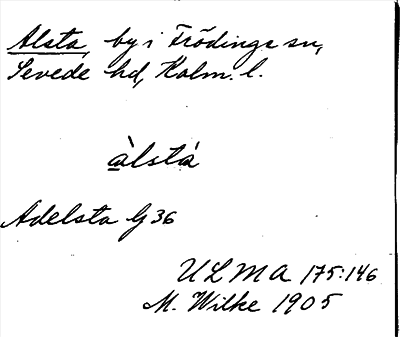 Alsta, by i Frödinge sn,
Sevede hd, Kalm. l.
à̲lstá
Adelsta G 36
ULMA 175:146
M. Wilke 1905